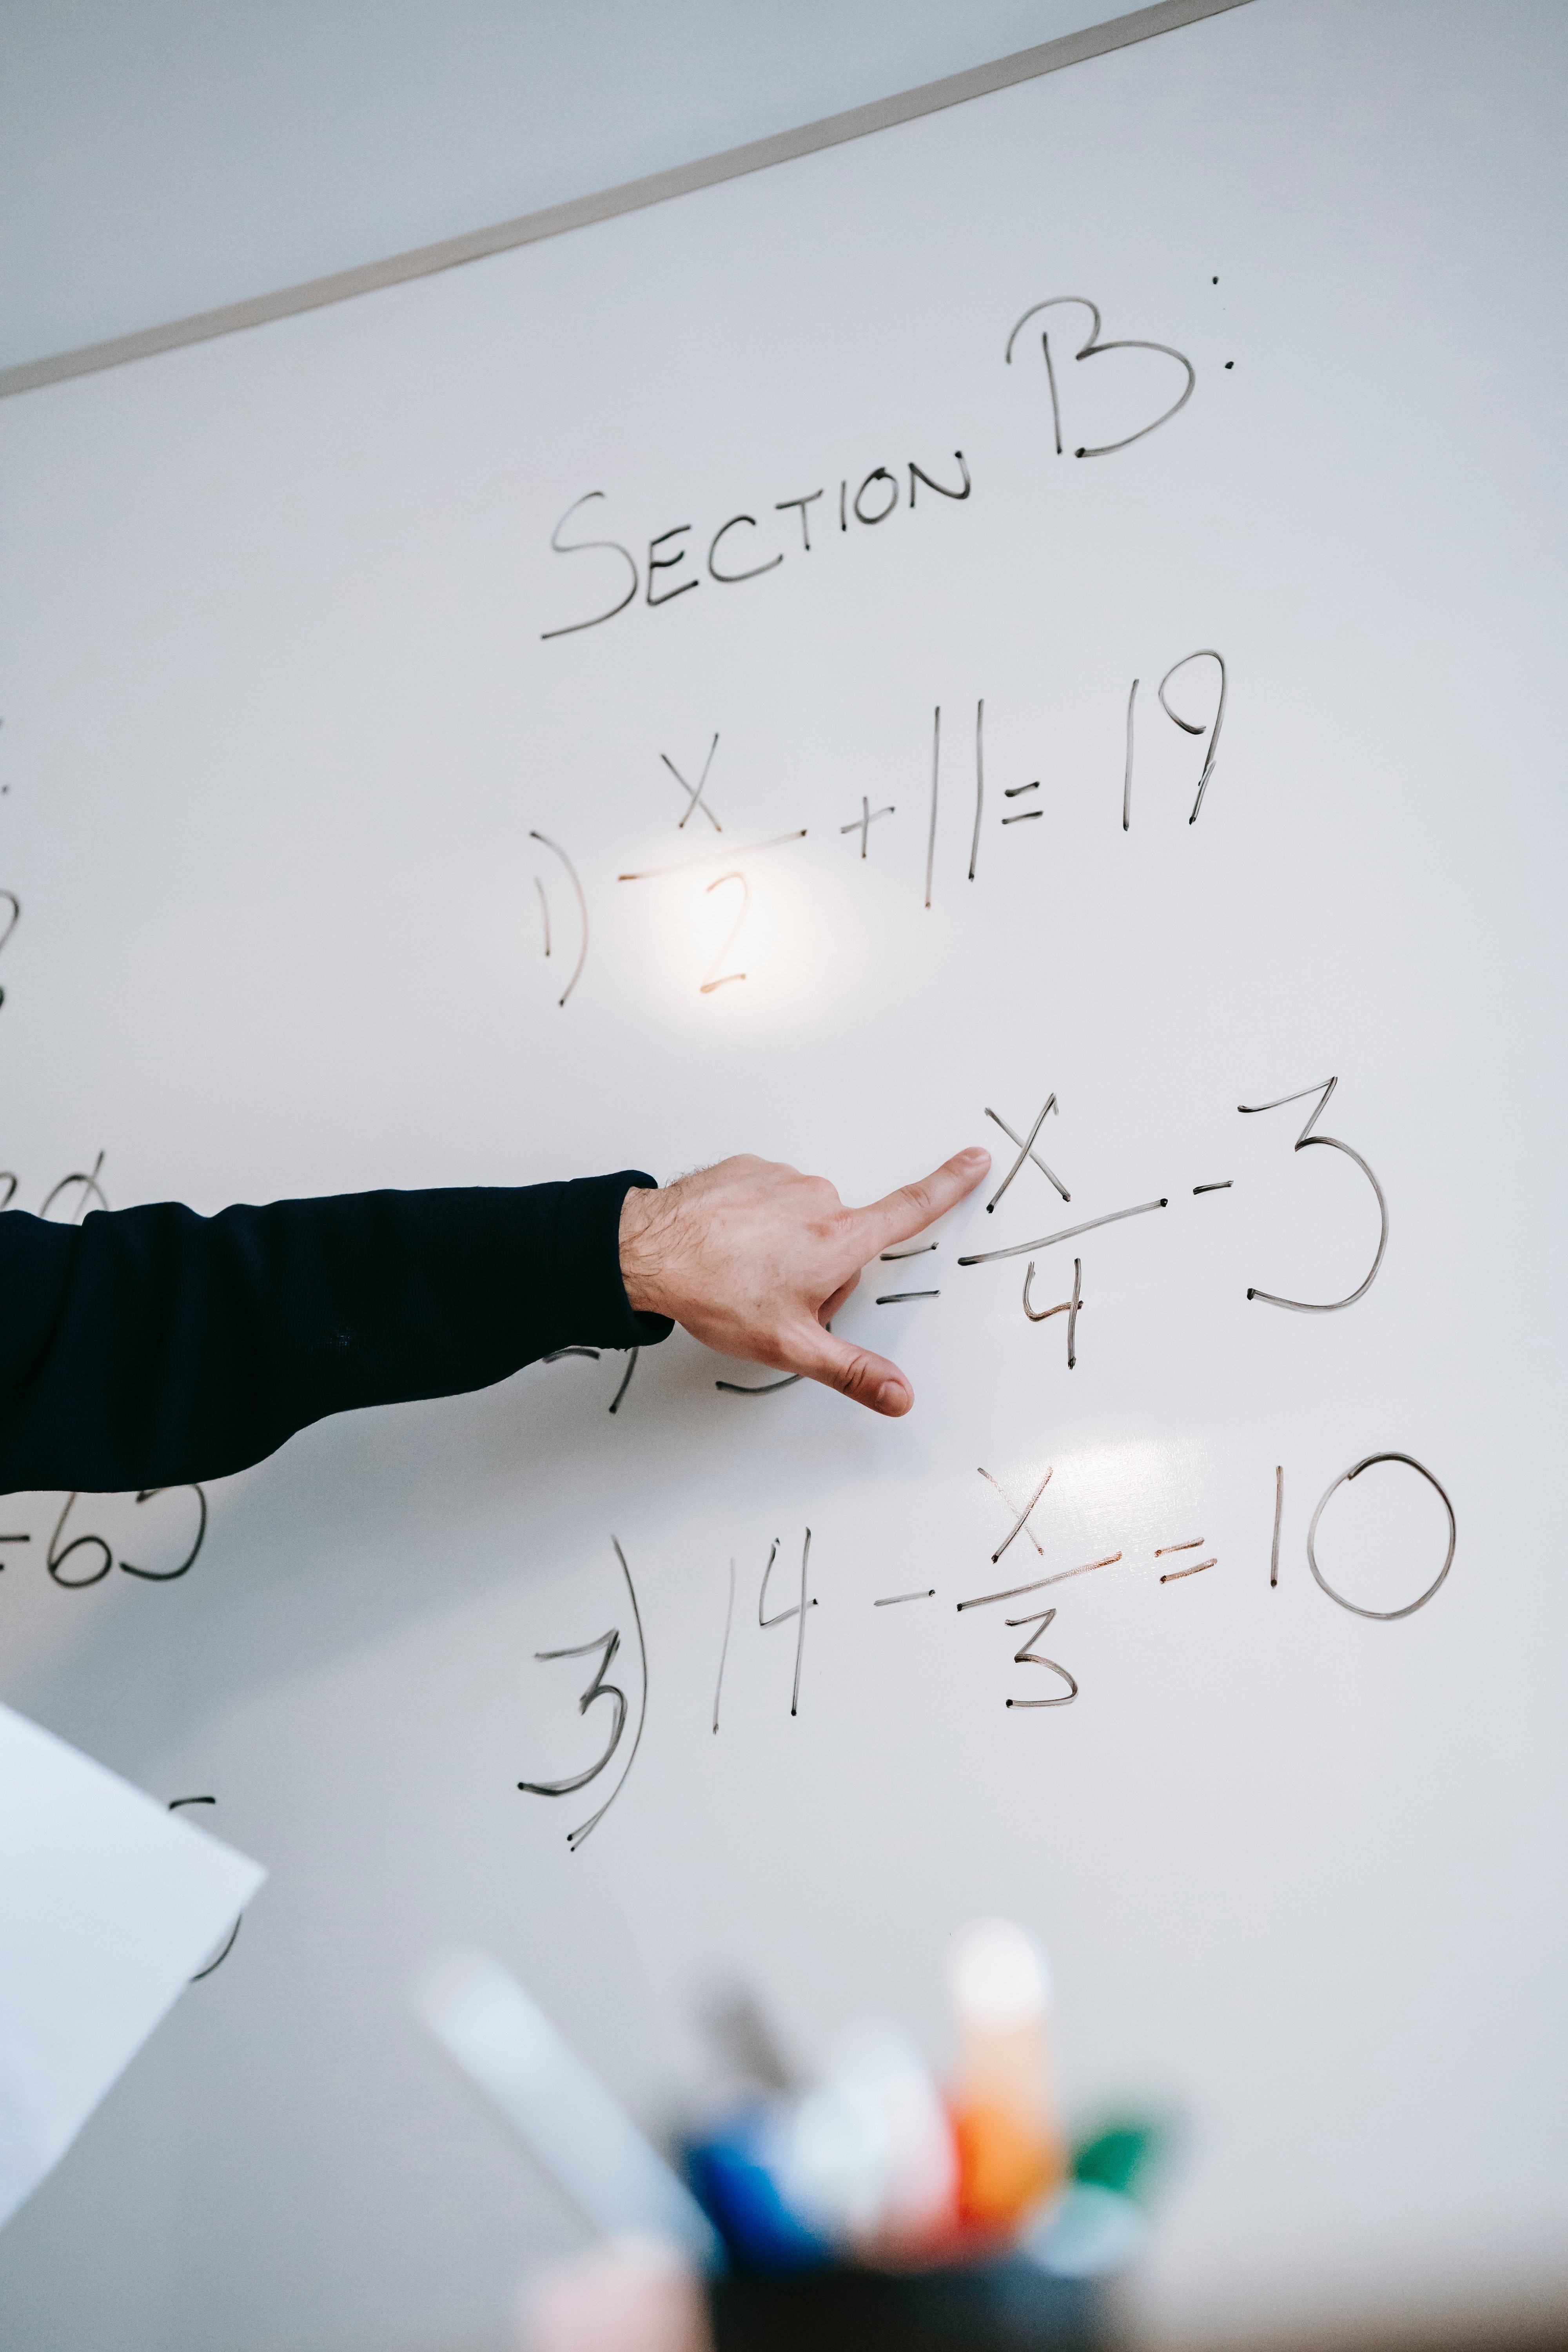 SECTION B:
1) x/2 + 11 = 19
= x/4 - 3
3) 14 - x/3 = 10
=65